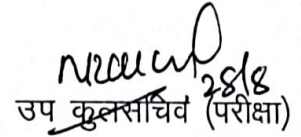 28/8
उप कुलसचिव (परीक्षा)